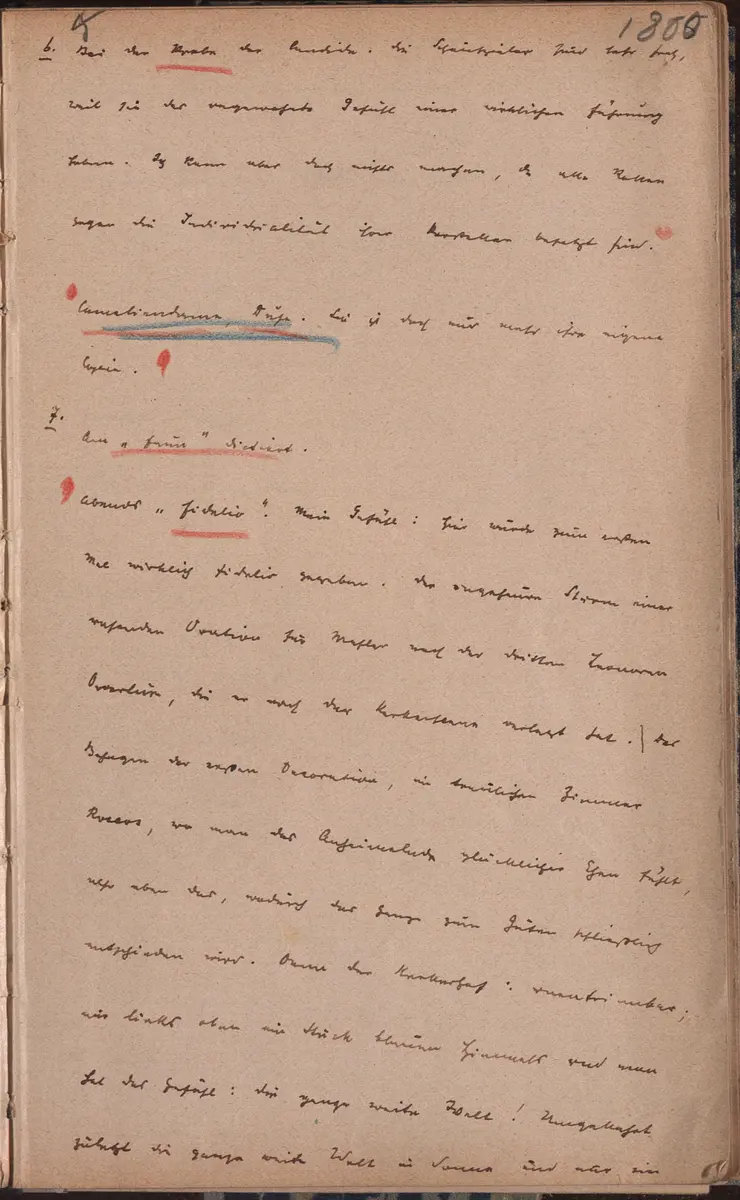 1800
6. Bei der Probe der Candida. Die Schauspieler sind sehr froh,
weil sie das ungewohnte Gefühl einer wirklichen Führung
haben. Ich kann aber doch nichts machen, da alle Rollen
gegen die Individualität ihrer Darsteller besetzt sind.
Cameliendame, Duse. Sie ist doch nur mehr ihre eigene
Copie.
7.
Am „Faun" dictiert.
Abends „Fidelio". Mein Gefühl: hier wurde zum ersten
Mal wirklich Fidelio gegeben. Der ungeheure Sturm einer
rasenden Ovation für Mahler nach der dritten Leonoren
Ouvertüre, die er nach der Kerkerscene verlegt hat. Das
Behagen der ersten Decoration, im traulichen Zimmer
Roccos, wo man das Anheimelnde glücklicher Ehen fühlt,
also eben das, wodurch das Ganze zum Guten schließlich
entschieden wird. Dann der Kerkerhof: unentrinnbar;
nur links oben ein Stück blauen Himmels und man
hat das Gefühl: die ganze weite Welt! Umgekehrt
zuletzt die ganze weite Welt in Sonne und nur ein